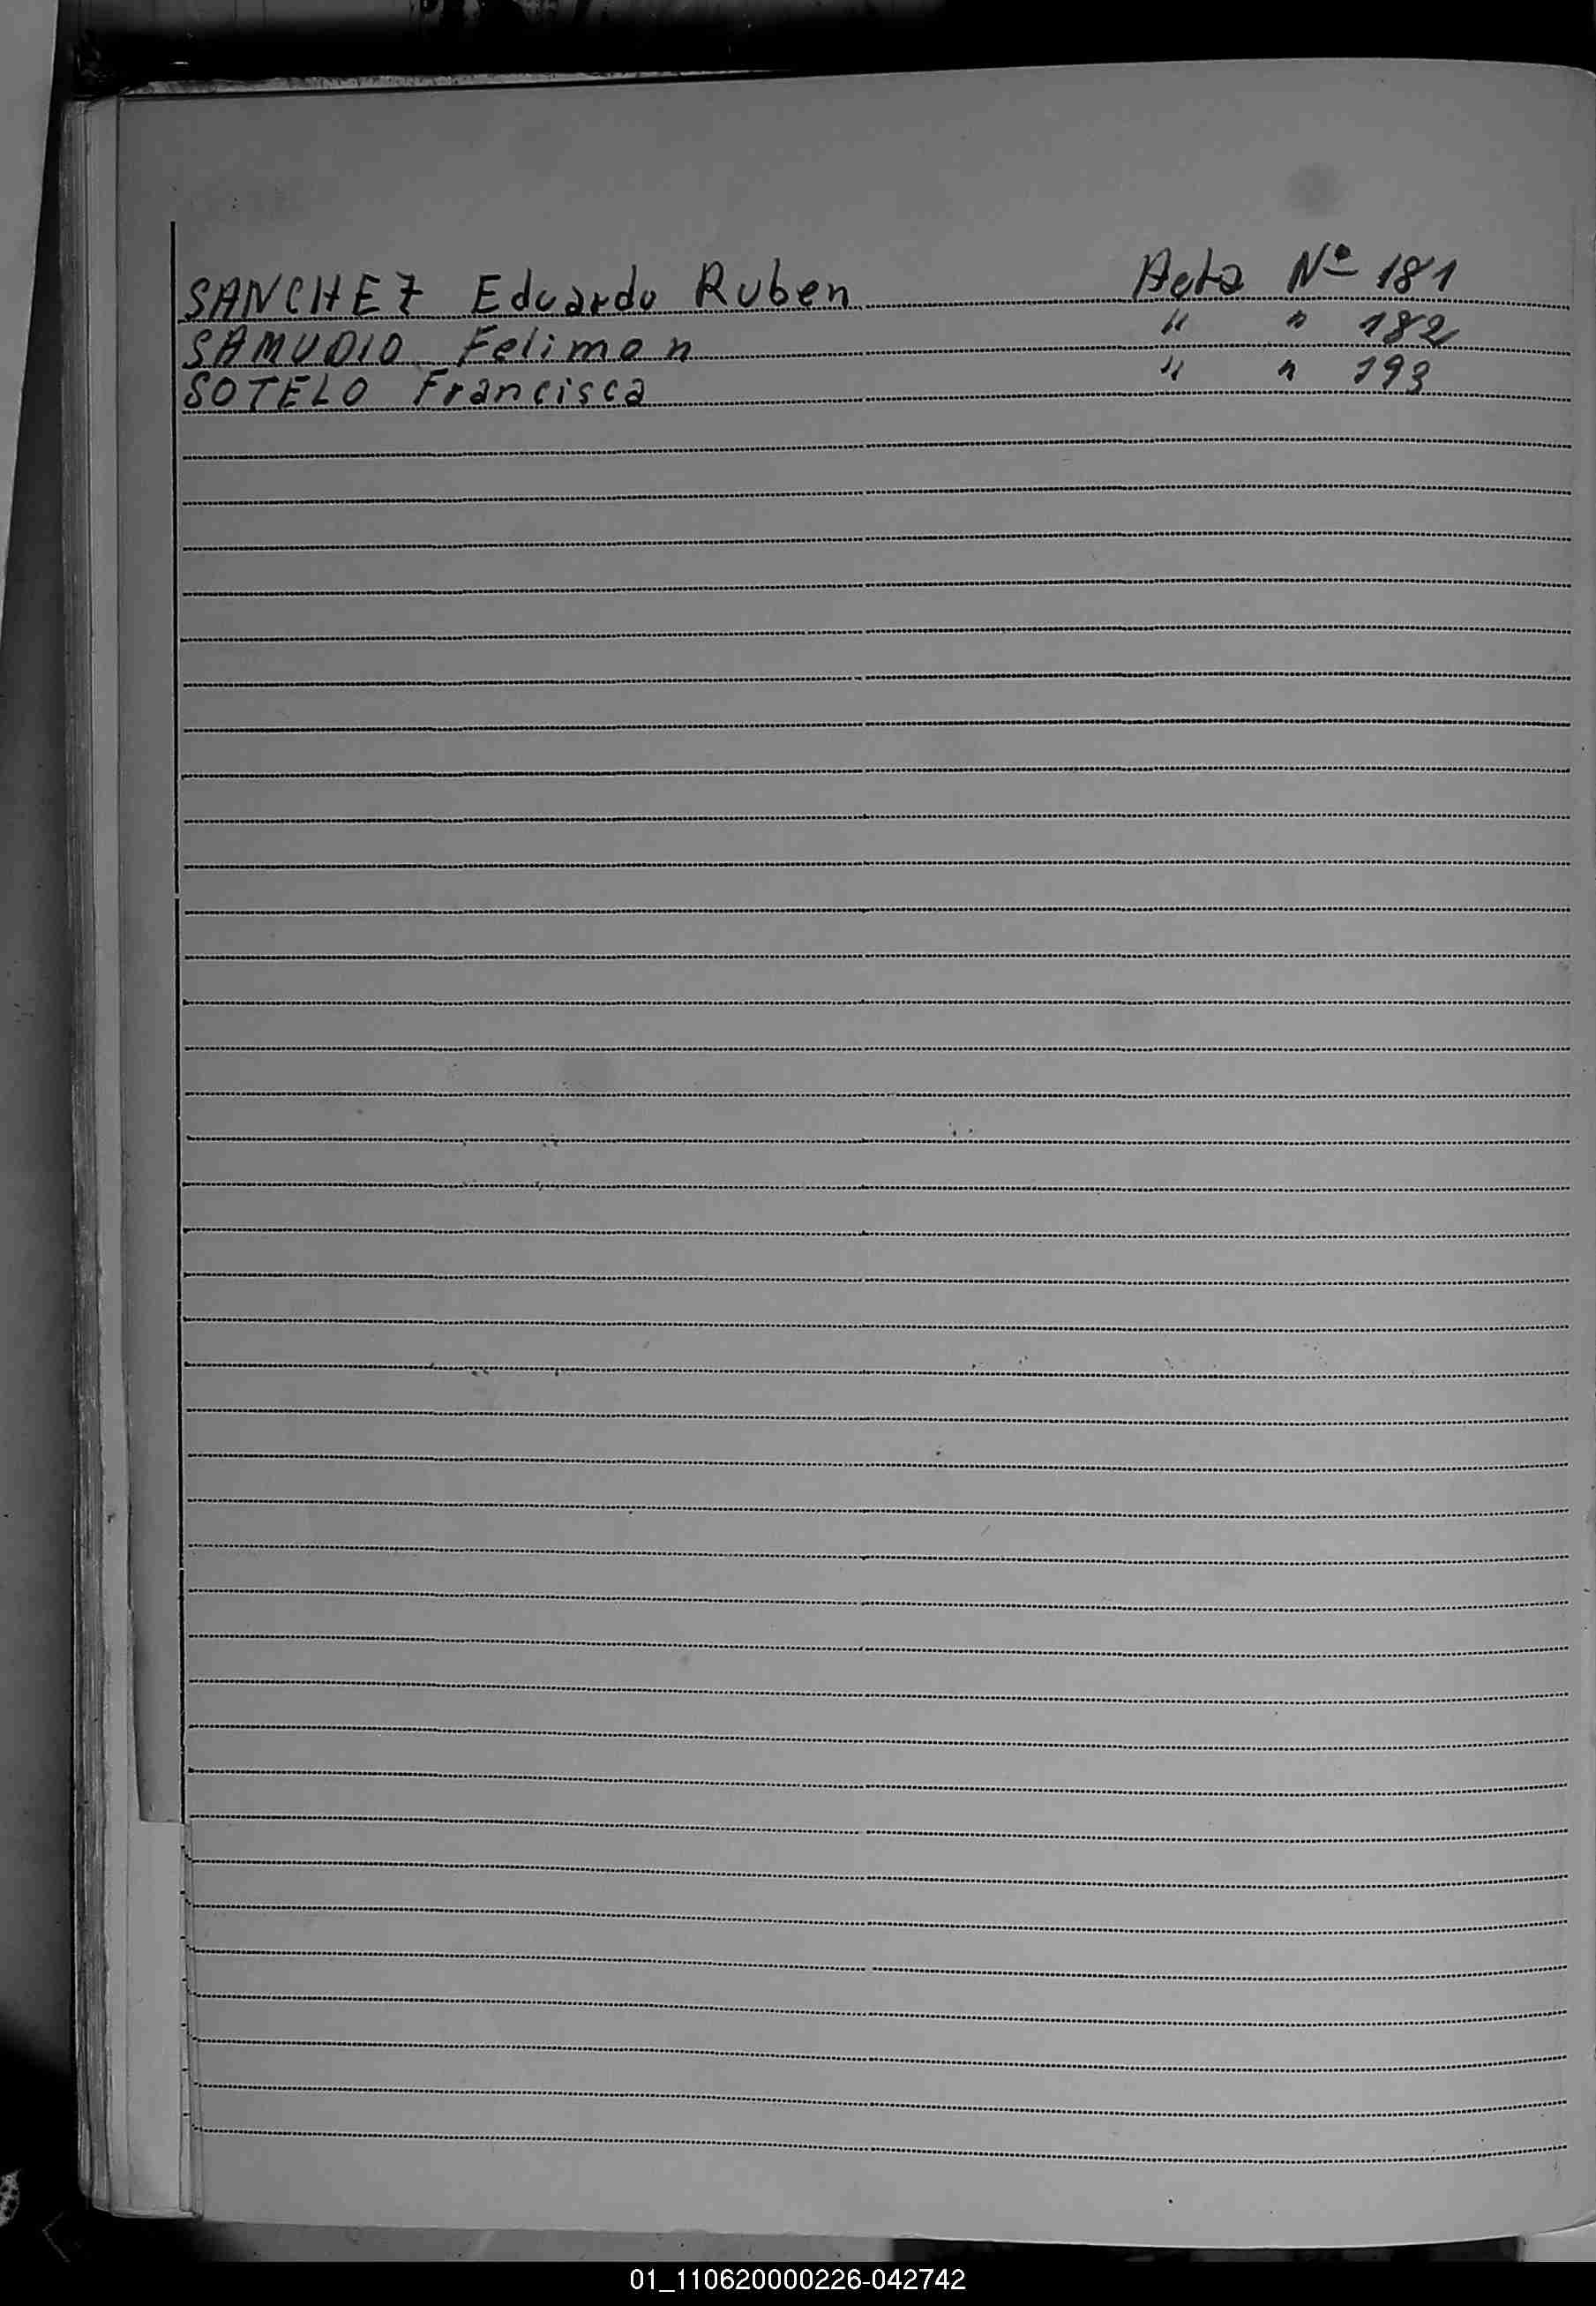 SANCHEZ Eduardo Ruben Acta Nº 181
SAMUDIO Felimon " " 182
SOTELO Francisca " " 193
01_110620000226-042742